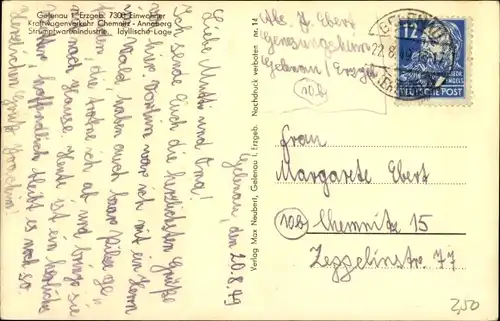 Gelenau i. Erzgeb. 7300 Einwohner
Kraftwagenverkehr Chemnitz - Annaberg
Strumpfwarenindustrie. Idyllische Lage
Gelenau, den 20.8.49
Liebe Mutti und Oma!
Ich sende Euch die herzlichsten Grüße
hier war ich mit ein Herrn
im Wald, haben auch paar Pilze ge-
die trockne ich ab und bringe sie
nach Hause. Heute ist ein herrliches
hoffentlich bleibt es noch so.
Herzlichen Gruß Joachim!
Verlag Max Neubert, Gelenau i. Erzgeb. Nachdruck verboten nr. 14
Abs. J. Ebert
Genesungsheim
Gelenau / Erzgeb.
(10b)
GELENAU
22.8.49
12
FRIEDR. ENGELS
DEUTSCHE POST
Frau
Margarete Ebert
(10b) Chemnitz 15
Zeppelinstr. 77
2,50